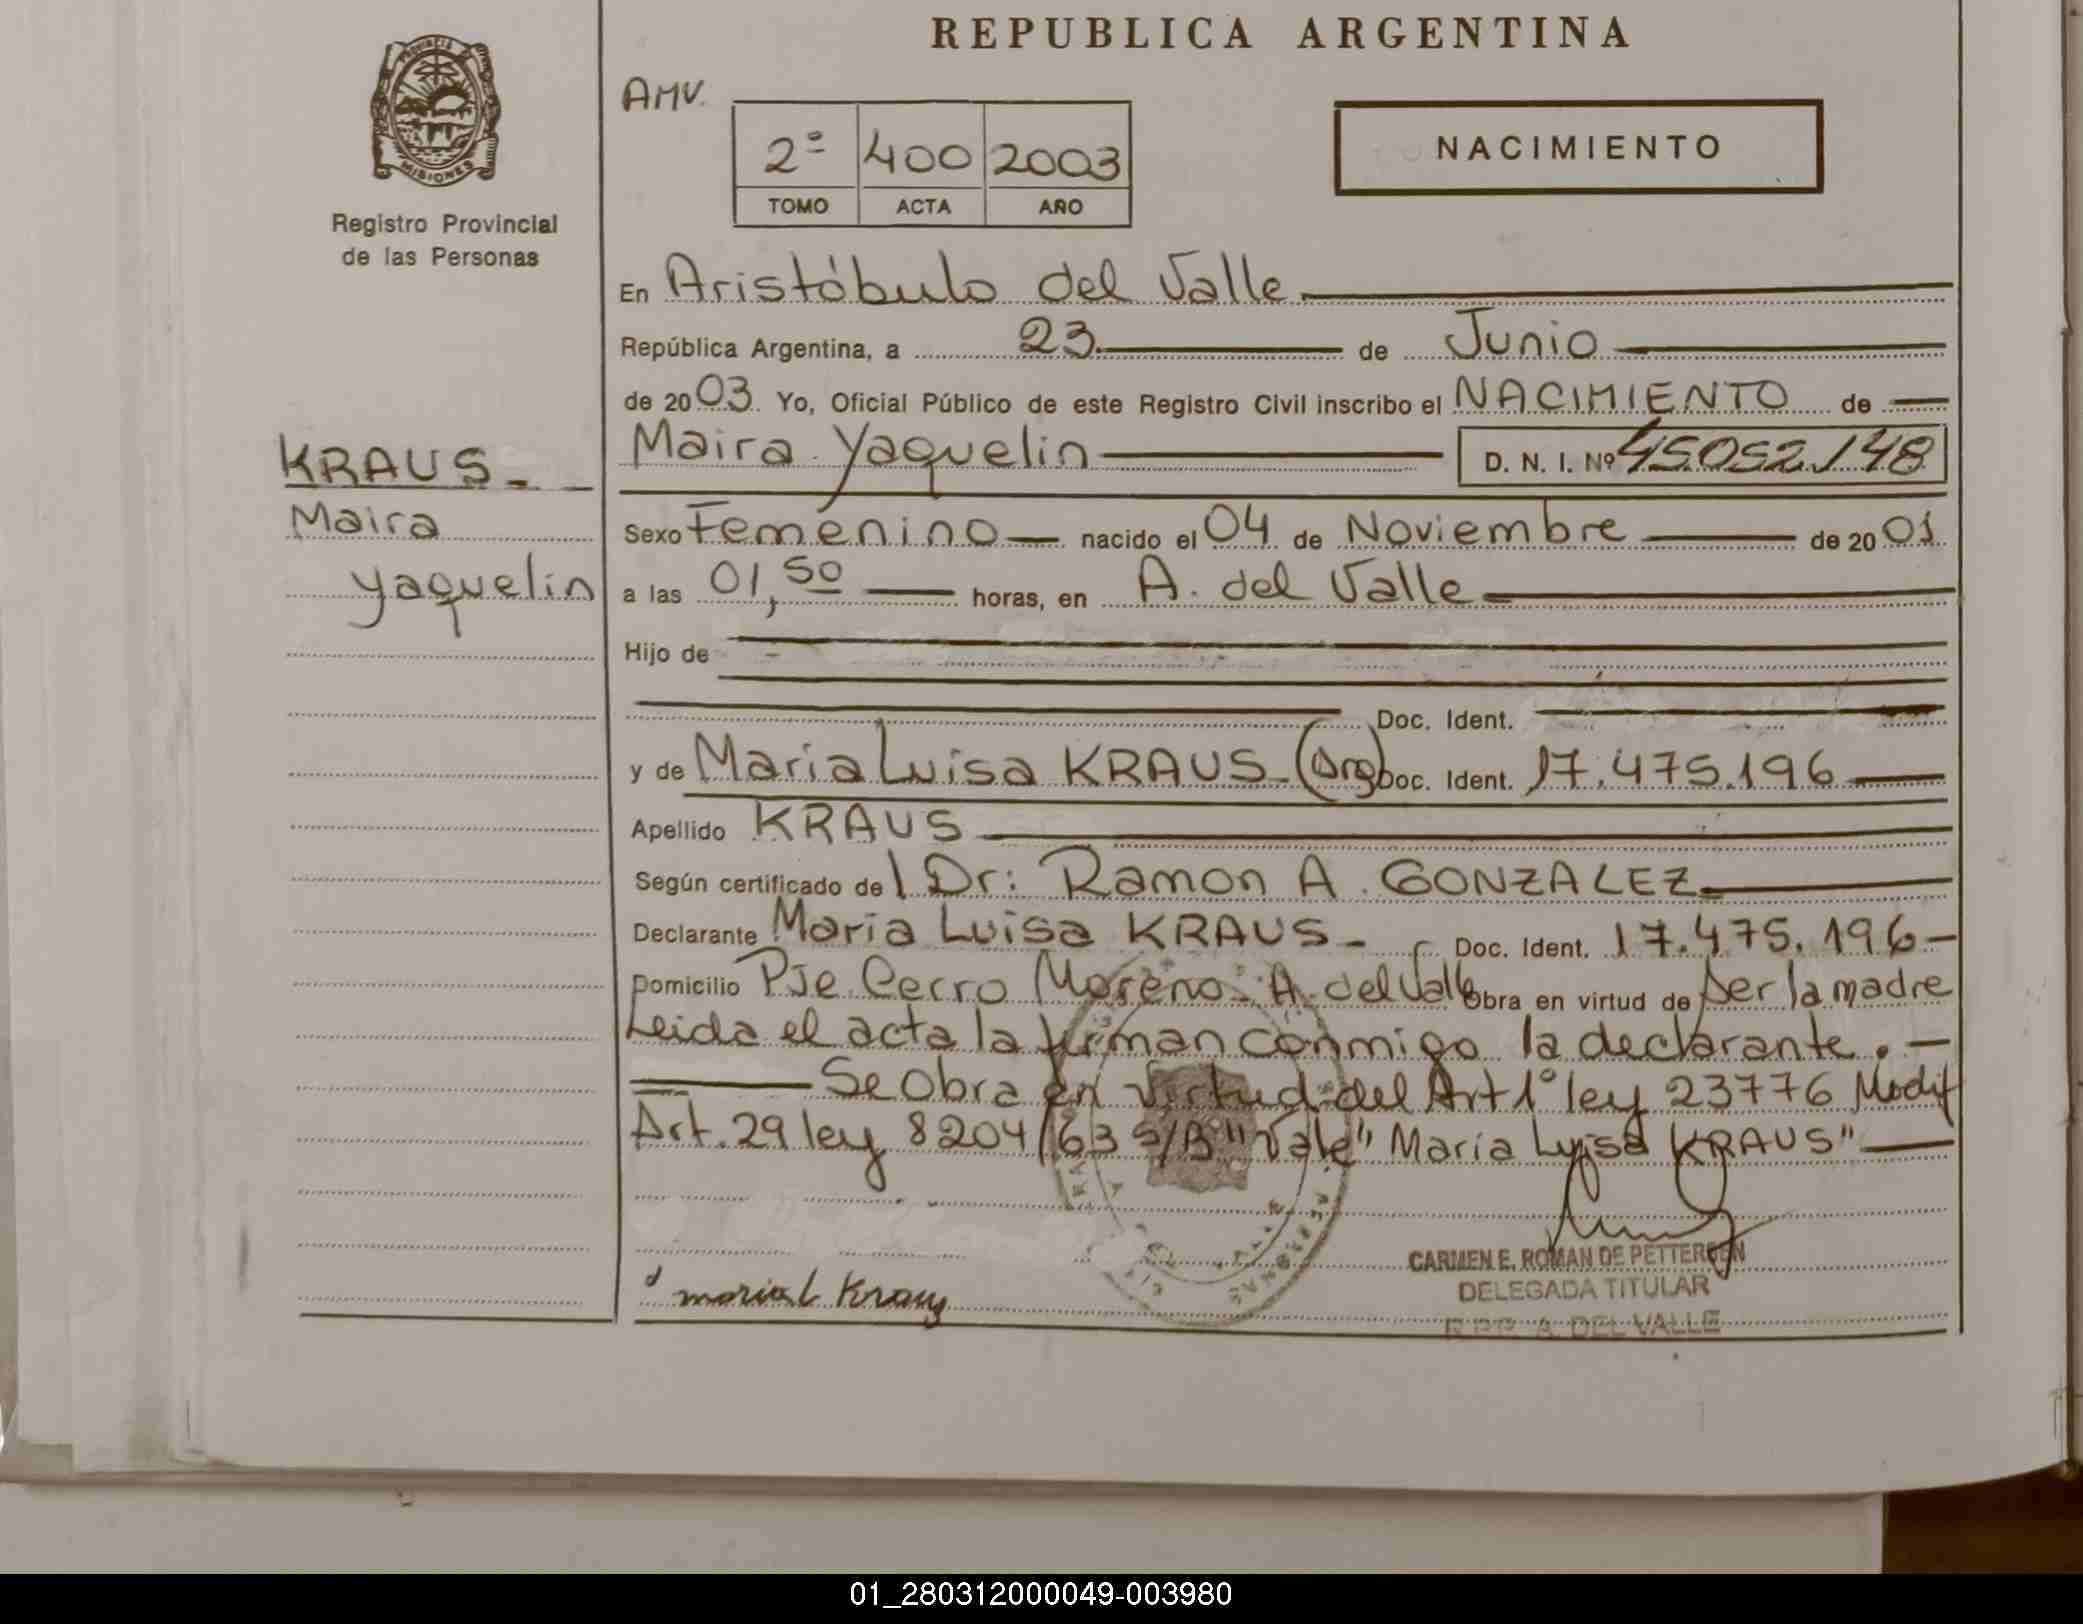 REPUBLICA ARGENTINA
PROVINCIA
MISIONES
Registro Provincial
de las Personas
AMV.
2º 400 2003
TOMO ACTA AÑO
NACIMIENTO
En Aristóbulo del Valle
República Argentina, a 23 de Junio
de 2003 Yo, Oficial Público de este Registro Civil inscribo el NACIMIENTO de
KRAUS
Maira
Yaquelin
Maira Yaquelin D. N. I. Nº 45.052.148
Sexo Femenino nacido el 04 de Noviembre de 2001
a las 01,50 horas, en A. del Valle
Hijo de
Doc. Ident.
y de Maria Luisa KRAUS (Arg) Doc. Ident. 17.475.196
Apellido KRAUS
Según certificado del Dr: Ramon A. GONZALEZ
Declarante Maria Luisa KRAUS - Doc. Ident. 17.475.196
Domicilio Pje Cerro Moreno - A. del Valle obra en virtud de ser la madre
Leida el acta la firman conmigo la declarante. -
Se Obra en virtud del Art 1º ley 23776 Modif
Art. 29 ley 8204/63 S/B "Vale" Maria Luisa KRAUS"
maria L Kraus
CARMEN E. ROMAN DE PETTERSEN
DELEGADA TITULAR
R.P.P. A. DEL VALLE
01_280312000049-003980